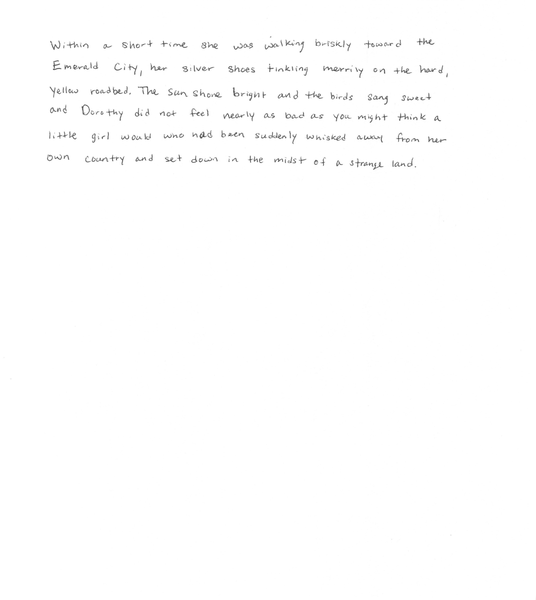 Within a short time she was walking briskly toward the
Emerald City, her silver shoes tinkling merrily on the hard,
yellow roadbed. The sun shone bright and the birds sang sweet
and Dorothy did not feel nearly as bad as you might think a
little girl would who had been suddenly whisked away from her
own country and set down in the midst of a strange land.